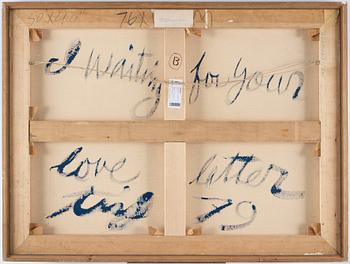 50x40"
76x
B
I Waiting for Your
love litter
79